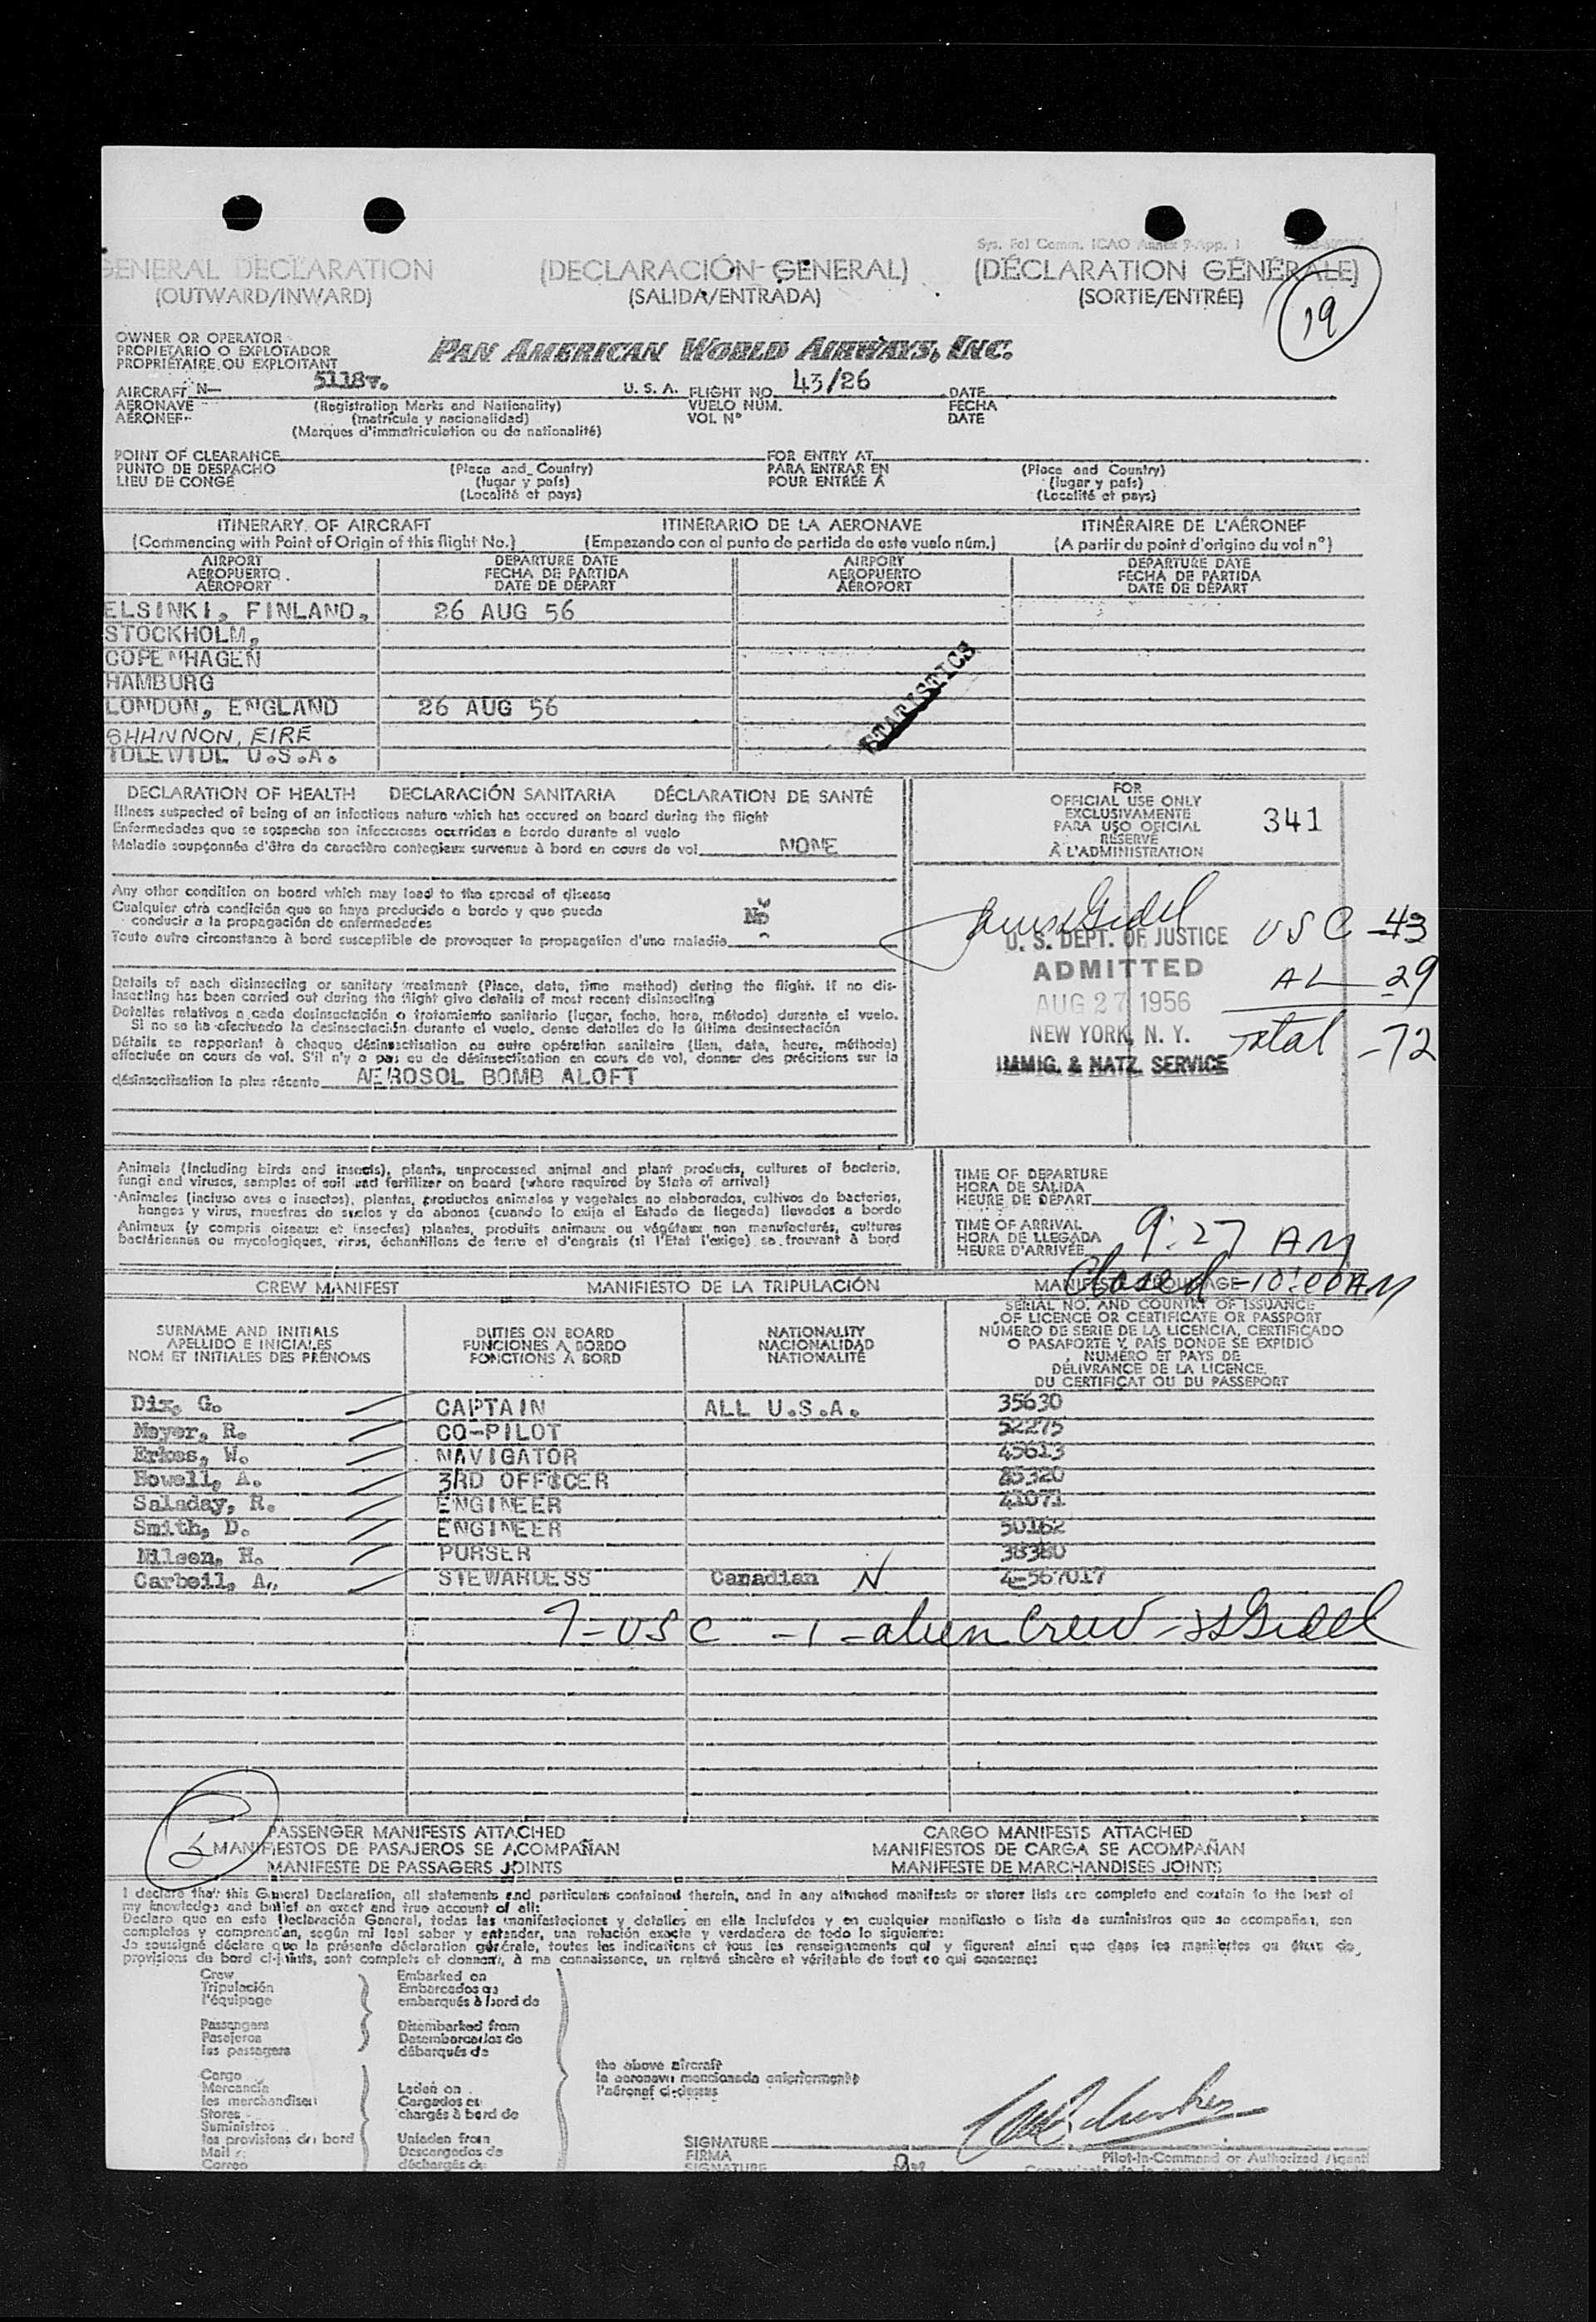 Sys. Fol Comm. ICAO Annex 9-App. 1
GENERAL DECLARATION (DECLARACIÓN GENERAL) (DÉCLARATION GÉNÉRALE)
(OUTWARD/INWARD) (SALIDA/ENTRADA) (SORTIE/ENTRÉE) 19
OWNER OR OPERATOR
PROPIETARIO O EXPLOTADOR
PROPRIÉTAIRE OU EXPLOITANT
PAN AMERICAN WORLD AIRWAYS, INC.
AIRCRAFT N— 5118v. U. S. A. FLIGHT NO. 43/26 DATE
AERONAVE (Registration Marks and Nationality) VUELO NÚM. FECHA
AÉRONEF (matrícula y nacionalidad) VOL Nº DATE
(Marques d'immatriculation ou de nationalité)
POINT OF CLEARANCE FOR ENTRY AT
PUNTO DE DESPACHO (Place and Country) PARA ENTRAR EN (Place and Country)
LIEU DE CONGÉ (lugar y país) POUR ENTRÉE À (lugar y país)
(Localité et pays) (Localité et pays)
ITINERARY OF AIRCRAFT ITINERARIO DE LA AERONAVE ITINÉRAIRE DE L'AÉRONEF
(Commencing with Point of Origin of this flight No.) (Empezando con el punto de partida de este vuelo núm.) (A partir du point d'origine du vol nº)
AIRPORT DEPARTURE DATE AIRPORT DEPARTURE DATE
AEROPUERTO FECHA DE PARTIDA AEROPUERTO FECHA DE PARTIDA
AÉROPORT DATE DE DÉPART AÉROPORT DATE DE DÉPART
ELSINKI, FINLAND, 26 AUG 56
STOCKHOLM,
COPENHAGEN
HAMBURG
LONDON, ENGLAND 26 AUG 56
SHANNON, EIRE
IDLEWIDL U.S.A.
STATISTICS
DECLARATION OF HEALTH DECLARACIÓN SANITARIA DÉCLARATION DE SANTÉ
Illness suspected of being of an infectious nature which has occured on board during the flight
Enfermedades que se sospecha son infecciosas ocurridas a bordo durante el vuelo
Maladie soupçonnée d'être de caractère contagieux survenue à bord en cours de vol NONE
Any other condition on board which may lead to the spread of disease
Cualquier otra condición que se haya producido a bordo y que pueda
conducir a la propagación de enfermedades No
Toute autre circonstance à bord susceptible de provoquer la propagation d'une maladie
Details of each disinsecting or sanitary treatment (Place, date, time method) during the flight. If no dis-
insecting has been carried out during the flight give details of most recent disinsecting
Detalles relativos a cada desinsectación o tratamiento sanitario (lugar, fecha, hora, método) durante el vuelo.
Si no se ha efectuado la desinsectación durante el vuelo, dense detalles de la última desinsectación
Détails se rapportant à chaque désinsectisation ou autre opération sanitaire (lieu, date, heure, méthode)
effectuée en cours de vol. S'il n'y a pas eu de désinsectisation en cours de vol, donner des précisions sur la
désinsectisation la plus récente AEROSOL BOMB ALOFT
FOR
OFFICIAL USE ONLY
EXCLUSIVAMENTE
PARA USO OFICIAL
RÉSERVÉ
À L'ADMINISTRATION
341
U. S. DEPT. OF JUSTICE
ADMITTED
AUG 27 1956
NEW YORK, N. Y.
IMMIG. & NATZ. SERVICE
USC - 43
AL - 29
Total - 72
Animals (including birds and insects), plants, unprocessed animal and plant products, cultures of bacteria,
fungi and viruses, samples of soil and fertilizer on board (where required by State of arrival)
Animales (incluso aves e insectos), plantas, productos animales y vegetales no elaborados, cultivos de bacterias,
hongos y virus, muestras de suelos y de abonos (cuando lo exija el Estado de llegada) llevados a bordo
Animaux (y compris oiseaux et insectes) plantes, produits animaux ou végétaux non manufacturés, cultures
bactériennes ou mycologiques, virus, échantillons de terre et d'engrais (si l'Etat l'exige) se trouvant à bord
TIME OF DEPARTURE
HORA DE SALIDA
HEURE DE DÉPART
TIME OF ARRIVAL
HORA DE LLEGADA
HEURE D'ARRIVÉE 9:27 AM
Closed - 10:00 AM
CREW MANIFEST MANIFIESTO DE LA TRIPULACIÓN
SURNAME AND INITIALS DUTIES ON BOARD NATIONALITY
APELLIDO E INICIALES FUNCIONES A BORDO NACIONALIDAD
NOM ET INITIALES DES PRÉNOMS FONCTIONS À BORD NATIONALITÉ
SERIAL NO. AND COUNTRY OF ISSUANCE
OF LICENCE OR CERTIFICATE OR PASSPORT
NÚMERO DE SERIE DE LA LICENCIA, CERTIFICADO
O PASAPORTE Y PAÍS DONDE SE EXPIDIÓ
NUMÉRO ET PAYS DE
DÉLIVRANCE DE LA LICENCE
DU CERTIFICAT OU DU PASSEPORT
Dix, G. CAPTAIN ALL U.S.A. 35630
Meyer, R. CO-PILOT 52275
Erkes, W. NAVIGATOR 45613
Howell, A. 3RD OFFICER 85320
Saladay, R. ENGINEER 41071
Smith, D. ENGINEER 50162
Nilsen, H. PURSER 38380
Carbeil, A. STEWARDESS Canadian N 4-567017
7 - USC - 1 - alien Crew -
PASSENGER MANIFESTS ATTACHED CARGO MANIFESTS ATTACHED
MANIFIESTOS DE PASAJEROS SE ACOMPAÑAN MANIFIESTOS DE CARGA SE ACOMPAÑAN
MANIFESTE DE PASSAGERS JOINTS MANIFESTE DE MARCHANDISES JOINTS
I declare that this General Declaration, all statements and particulars contained therein, and in any attached manifests or stores lists are complete and contain to the best of
my knowledge and belief an exact and true account of all:
Declaro que en esta Declaración General, todas las manifestaciones y detalles en ella incluídos y en cualquier manifiasto o lista de suministros que se acompañan, son
completos y comprendan, según mi leal saber y entender, una relación exacta y verdadera de todo lo siguiente:
Je soussigné déclare que la présente déclaration générale, toutes les indications et tous les renseignements qui y figurent ainsi que dans les manifestes ou états de
provisions de bord ci-joints, sont complets et donnent, à ma connaissance, un relevé sincère et véritable de tout ce qui concerne:
Crew Embarked on
Tripulación Embarcados en
l'équipage embarqués à bord de
Passengers Disembarked from
Pasajeros Desembarcados de
les passagers débarqués de
the above aircraft
la aeronave mencionada anteriormente
l'aéronef ci-dessus
Cargo
Mercancía Laden on
les merchandises Cargados en
Stores chargés à bord de
Suministros
les provisions de bord Unladen from
Mail Descargados de
Correo déchargés de
SIGNATURE
FIRMA Pilot-In-Command or Authorized Agent
SIGNATURE